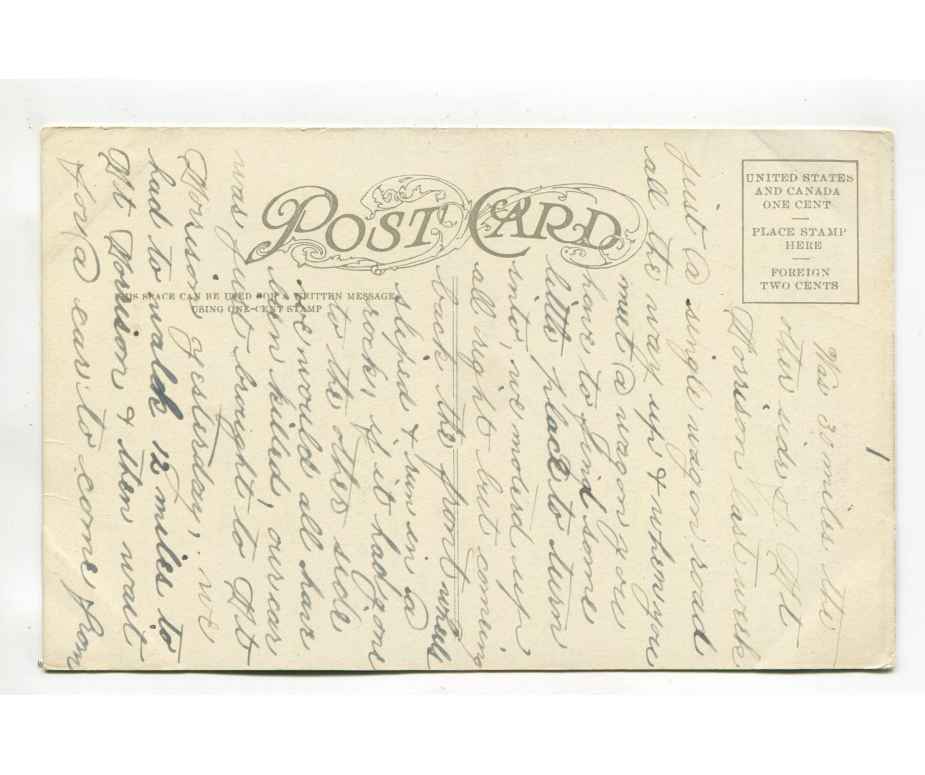 POST CARD
UNITED STATES
AND CANADA
ONE CENT
PLACE STAMP
HERE
FOREIGN
TWO CENTS
THIS SPACE CAN BE USED FOR A WRITTEN MESSAGE
USING ONE-CENT STAMP
1
Was 30 miles the
other side of Mt
Morrison last week
just a single wagon road
all the way up & when you
meet a wagon you
have to find some
little place to turn
into, we motored up
all right but coming
back the front wheel
sliped & run in a
rock, if it had gone
to the other side
we would all have
been killed, our car
was just brought to Mt
Morrison yesterday, we
had to walk 12 miles to
Mt Morrison & then wait
for a car to come from